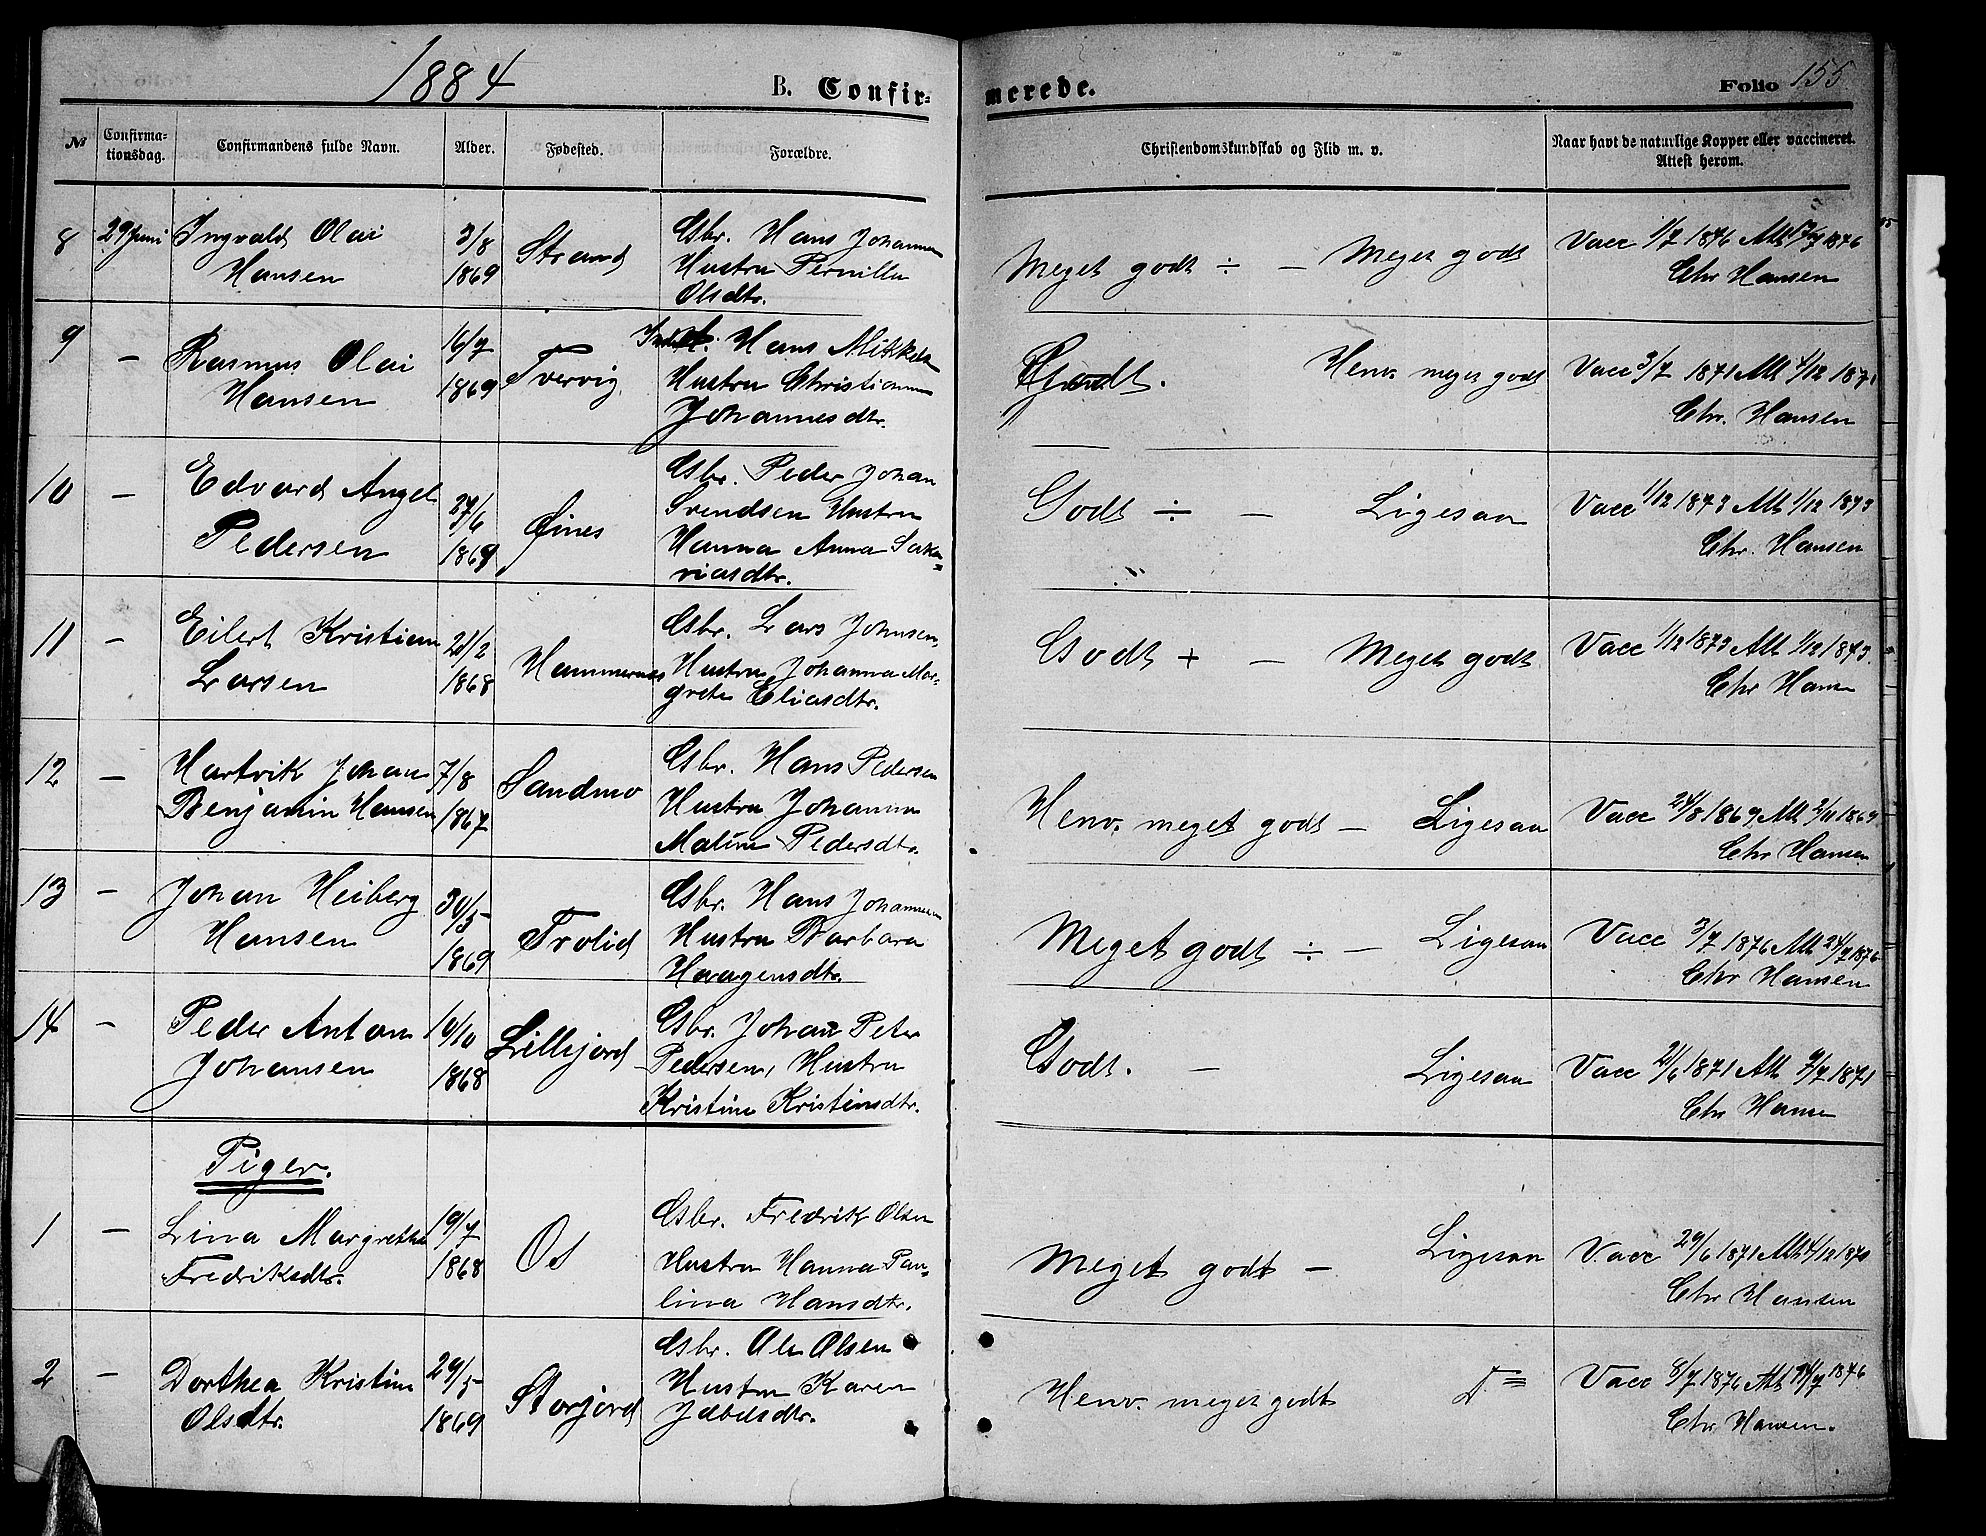 1884
B. Confir-
merede.
Folio 155
№
Confirma-
tionsdag.
Confirmandens fulde Navn.
Alder.
Fødested.
Forældre.
Christendomskundskab og Flid m. v.
Naar havt de naturlige Kopper eller vaccineret.
Attest herom.
8 29 Juni Ingvald Olai
Hansen
3/8
1869
Strand
Gbr. Hans Johannesen
Hustru Pernilla
Olsdtr.
Meget godt ÷ — Meget godt
Vacc 1/7 1876 Att 17/7 1876
Chr Hansen
9 — Rasmus Olai
Hansen
16/7
1869
Tvervig
Hans Mikkelsen
Hustru Christianna
Johannesdtr.
Godt. Henv. meget godt
Vacc 3/7 1871 Att 4/12 1871
Chr. Hansen
10 — Edvard Angel
Pedersen
27/6
1869
Øines
Gbr. Peder Johan
Svendsen Hustru
Hanna Anna Saka=
riasdtr.
Godt ÷ — Ligesaa
Vacc 1/12 1873 Att 1/12 1873
Chr. Hansen
11 — Eilert Kristian
Larsen
21/2
1868
Hammernes
Gbr. Lars Johnsen,
Hustru Johanna Mar-
grete Eliasdtr.
Godt + — Meget godt
Vacc 1/12 1873 Att 1/12 1873.
Chr Hansen
12 — Hartvik Johan
Benjamin Hansen
7/8
1867
Sandmo
Gbr. Hans Pedersen
Hustru Johanna
Maline Pedersdtr.
Henv. meget godt — Ligesaa
Vacc 24/8 1869, Att 2/11 1869
Chr Hansen
13 — Johan Heiberg
Hansen
30/5
1869
Trolid
Gbr. Hans Johannesen
Hustru Barbara
Haagensdtr.
Meget godt ÷ — Ligesaa
Vacc 3/7 1876 Att 24/7 1876
Chr Hansen
14 — Peder Anton
Johansen
16/10
1868
Lillejord
Gbr. Johan Peter
Pedersen, Hustru
Kristine Kristensdtr.
Godt. — Ligesaa
Vacc 21/6 1871 Att 9/7 1871
Chr Hansen
Piger.
1 — Lina Margrethe
Fredriksdtr.
19/7
1868
Os
Gbr. Fredrik Olsen
Hustru Hanna Pau-
lina Hansdtr.
Meget godt — Ligesaa
Vacc 29/6 1871 Att 4/12 1871
Chr Hansen
2 — Dorthea Kristine
Olsdtr.
29/5
1869
Storjord
Gbr. Ole Olsen
Hustru Karen
Jebelsdtr.
Henv. meget godt
Vacc 8/7 1876 Att 14/7 1876
Chr Hansen.